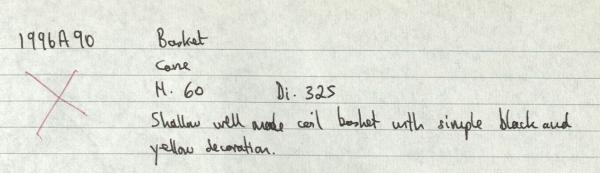 1996A90 Basket
Cane
H. 60 Di. 325
Shallow well made coil basket with simple black and
yellow decoration.